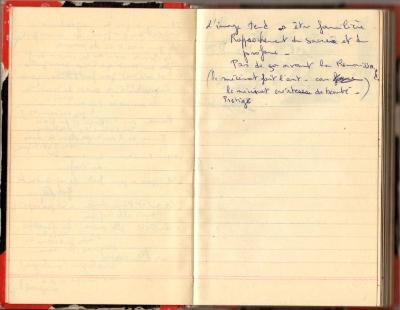 L'image tend à être familière
Rapprochement du sacré et du
profane -
Pas de ça avant la Renaissance
(le mécénat fait l'art - car
le mécénat de beauté -
Prestige